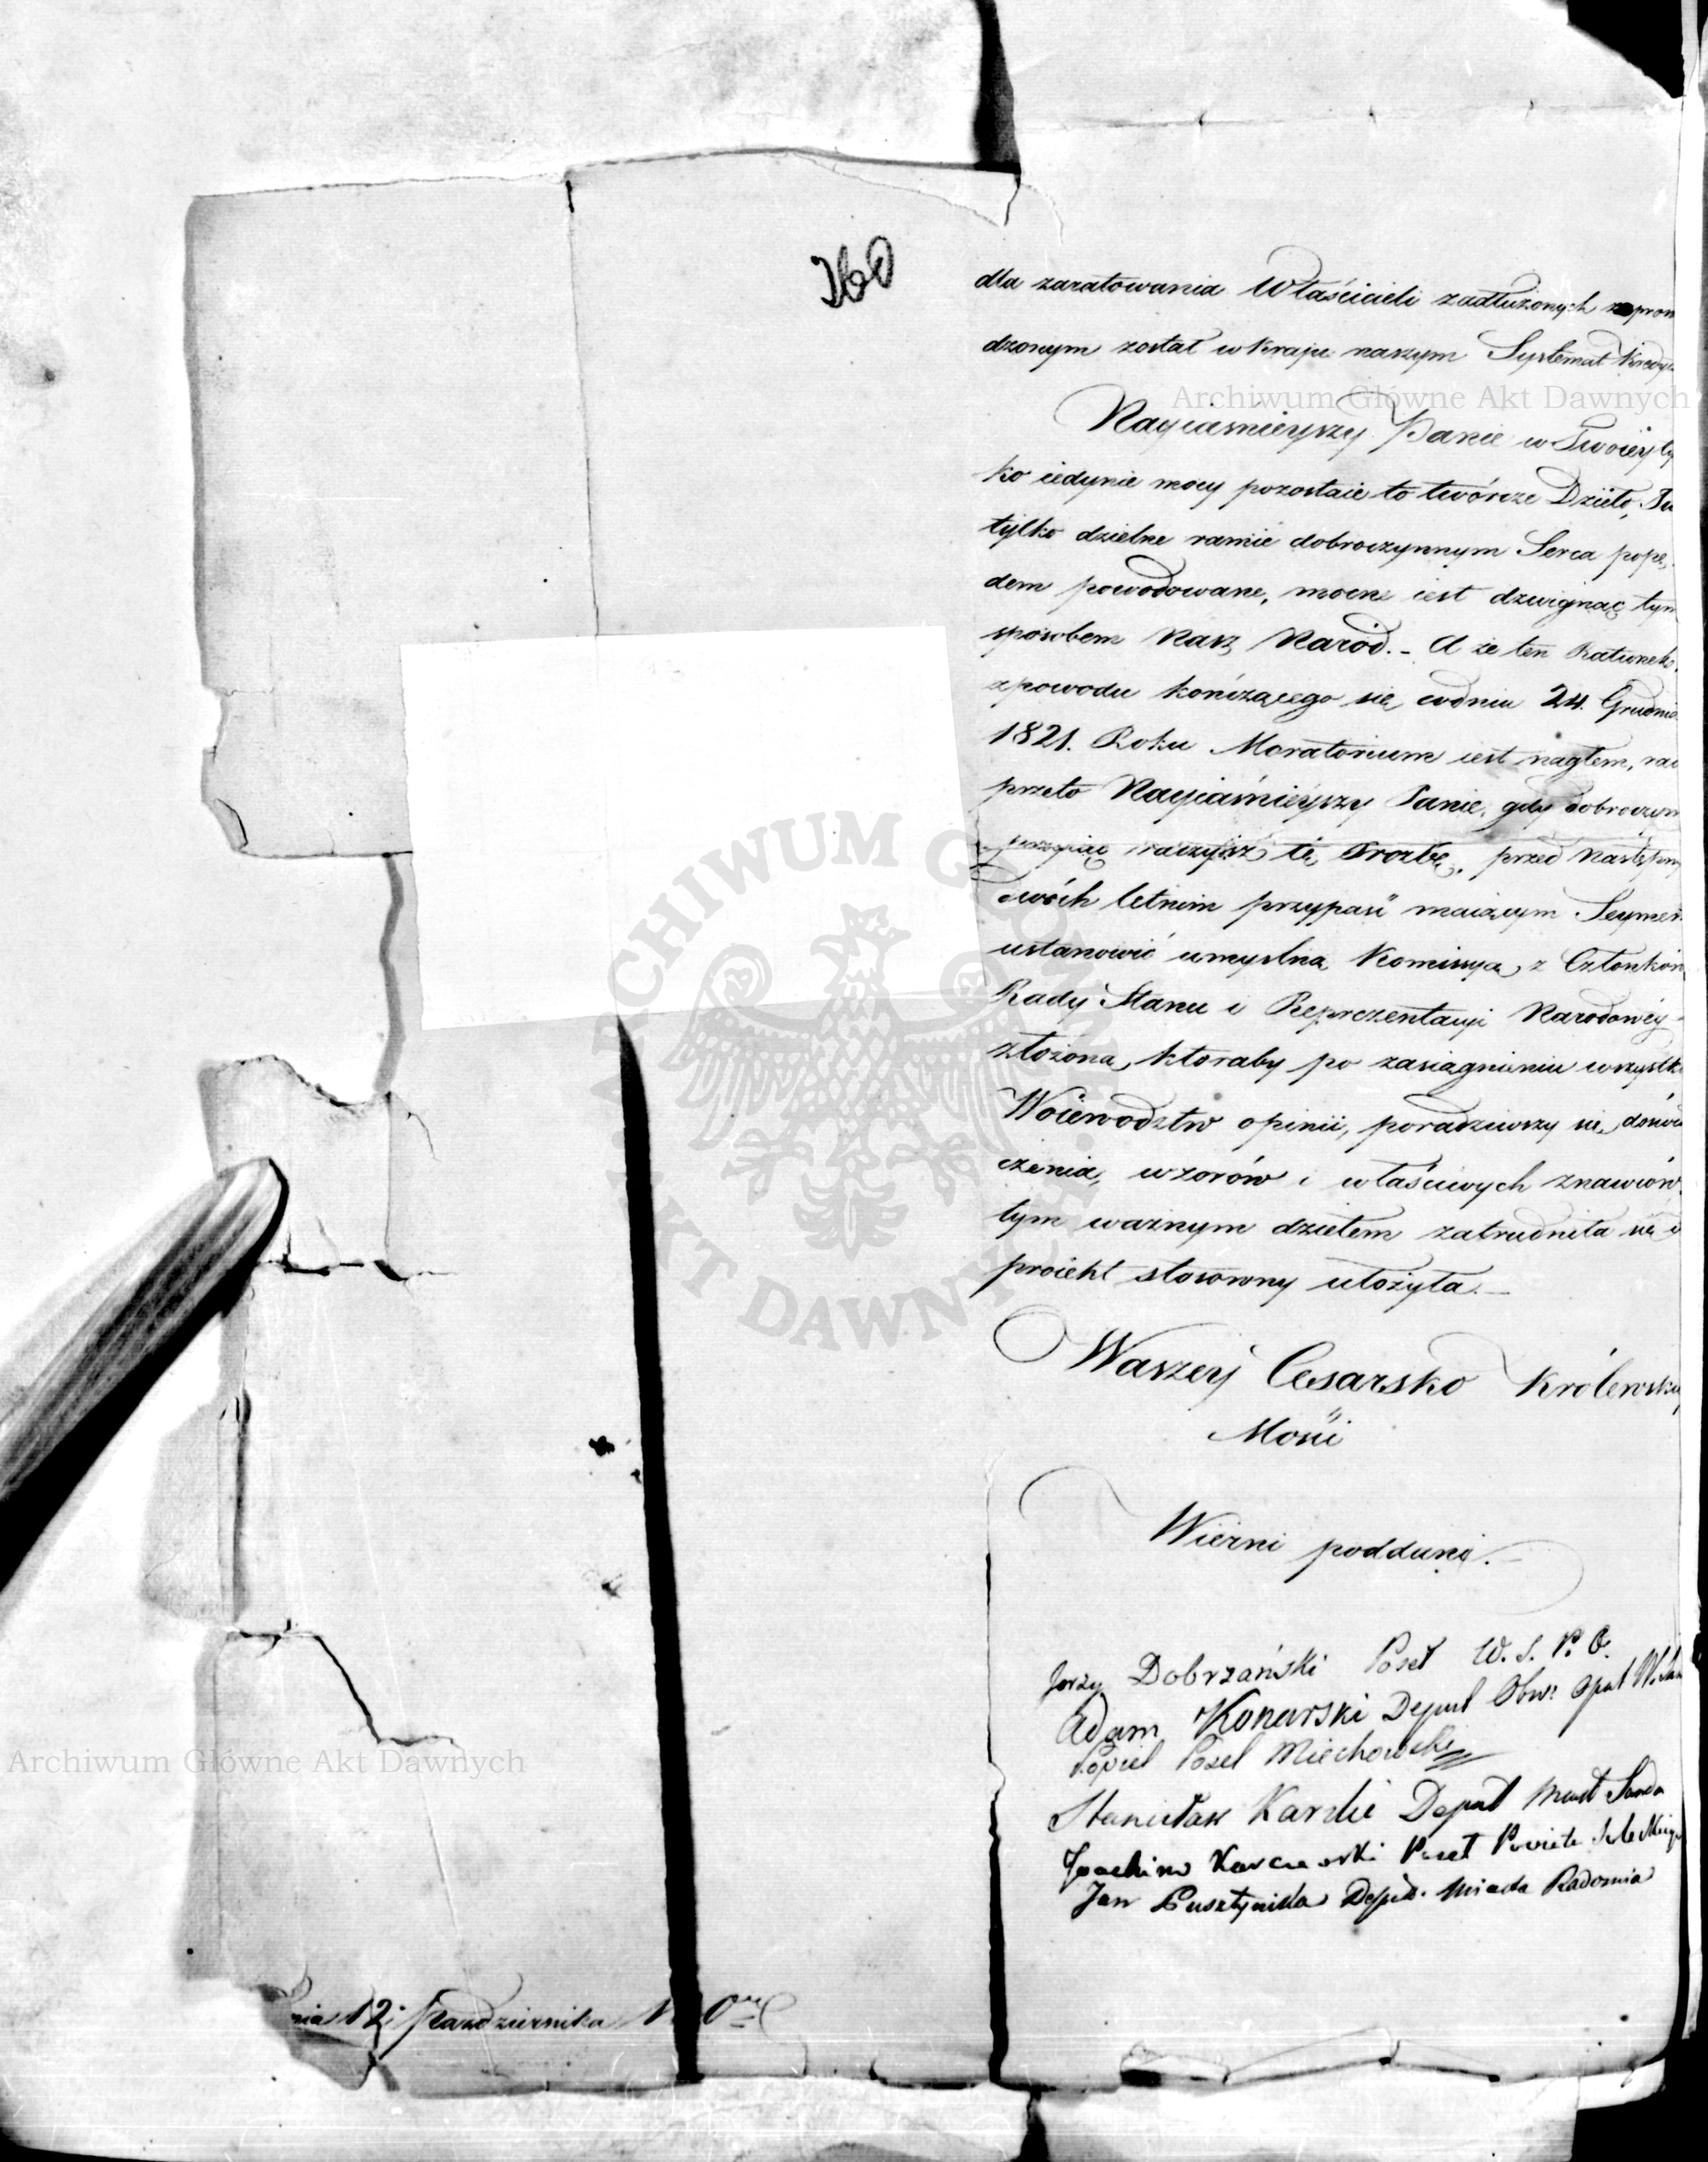 360
dla zaratowania Właścicieli zadłużonych
dzonym został w kraju naszym Systemat
Nayiaśnieyszy Panie w Twoiey ty
ko iedynie mocy pozostaie to twórcze Dzieło, Tw
tylko dzielne ramie dobroczynnym Serca popę
dem powodowane, mocne iest dzwignąć tym
sposobem Nasz Naród. _ A że ten Ratunek
z powodu kończącego się w dniu 24. Grudnia
1821. Roku Moratorium iest nagłem, racz
przeto Nayiaśnieyszy Panie, gdy
przyiąć raczysz tę Prozbę, przed
dwóch letnim przypaść maiącym Seymem
ustanowić umyślną Komissyą, z Członków
Rady Stanu i Reprezentacyi Narodowéy
złożoną, któraby po zasiągnieniu wszystk
Woiewodztw opinii, poradziwszy się, doświad
czenia, wzorów i właściwych znawców
tym ważnym dziełem zatrudniła się i
proiekt stosowny ułożyła. _
Waszey Cesarsko Królewskiy
Mości
Wierni poddani. _
Jerzy Dobrzański Poseł W. S. P. O.
Adam Konarski Deput Obw: Opat
Popiel Poseł Miechowski
Stanisław Deput Miast
Joachim Karczewski Poseł Powiatu
Jan Depu. Miasta Radomia
nia 12. Pazdziernika
Archiwum Główne Akt Dawnych
Archiwum Główne Akt Dawnych
ARCHIWUM GŁÓWNE AKT DAWNYCH